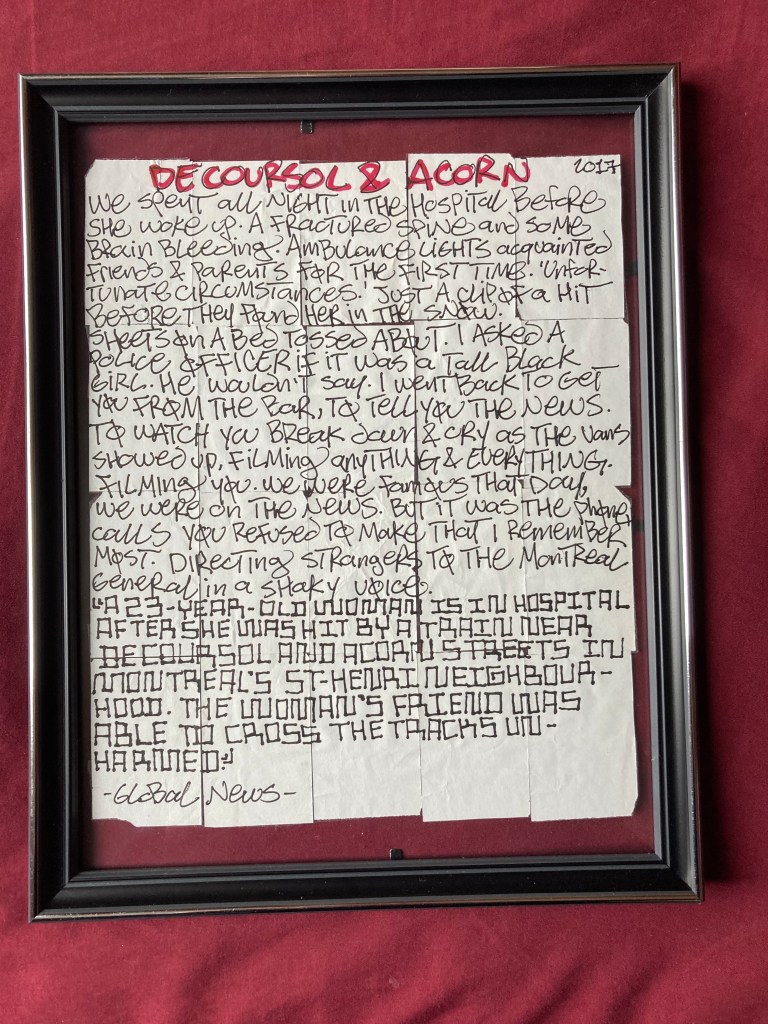 DECOURSOL & ACORN 2017
WE SPENT all NIGHT IN THE HOSPITAL BEFORE
SHE WOKE UP. A FRACTURED SPINE AND SOME
BRAIN BLEEDING. AMBULANCE LIGHTS acquainted
FRIENDS & PARENTS FOR THE FIRST TIME. 'UNFOR-
TUNATE CIRCUMSTANCES.' JUST A CLIP OF a HIT
BEFORE THEY FOUND HER IN THE SNOW.
SHEETS ON A BED TOSSED ABOUT. I ASKED A
POLICE OFFICER IF IT WAS a TALL BLACK
GIRL. HE WOULDN'T SAY. I WENT BACK TO GET
YOU FROM THE BAR, TO TELL YOU THE NEWS.
TO WATCH YOU BREAK down & CRY as THE VANS
SHOWED UP, FILMING anyTHING & EVERYTHING.
FILMING YOU. WE WERE FAMOUS THAT DAY,
WE WERE ON THE NEWS. BUT IT WAS THE phone
calls YOU REFUSED TO MAKE THAT I REMEMBER
MOST. DIRECTING STRANGERS TO THE MONTREAL
GENERAL in a SHAKY VOICE.
"A 23-YEAR-OLD WOMAN IS IN HOSPITAL
AFTER SHE WAS HIT BY A TRAIN NEAR
DECOURSOL AND ACORN STREETS IN
MONTREAL'S ST-HENRI NEIGHBOUR-
HOOD. THE WOMAN'S FRIEND WAS
ABLE TO CROSS THE TRACKS UN-
HARMED."
-GLOBAL NEWS-